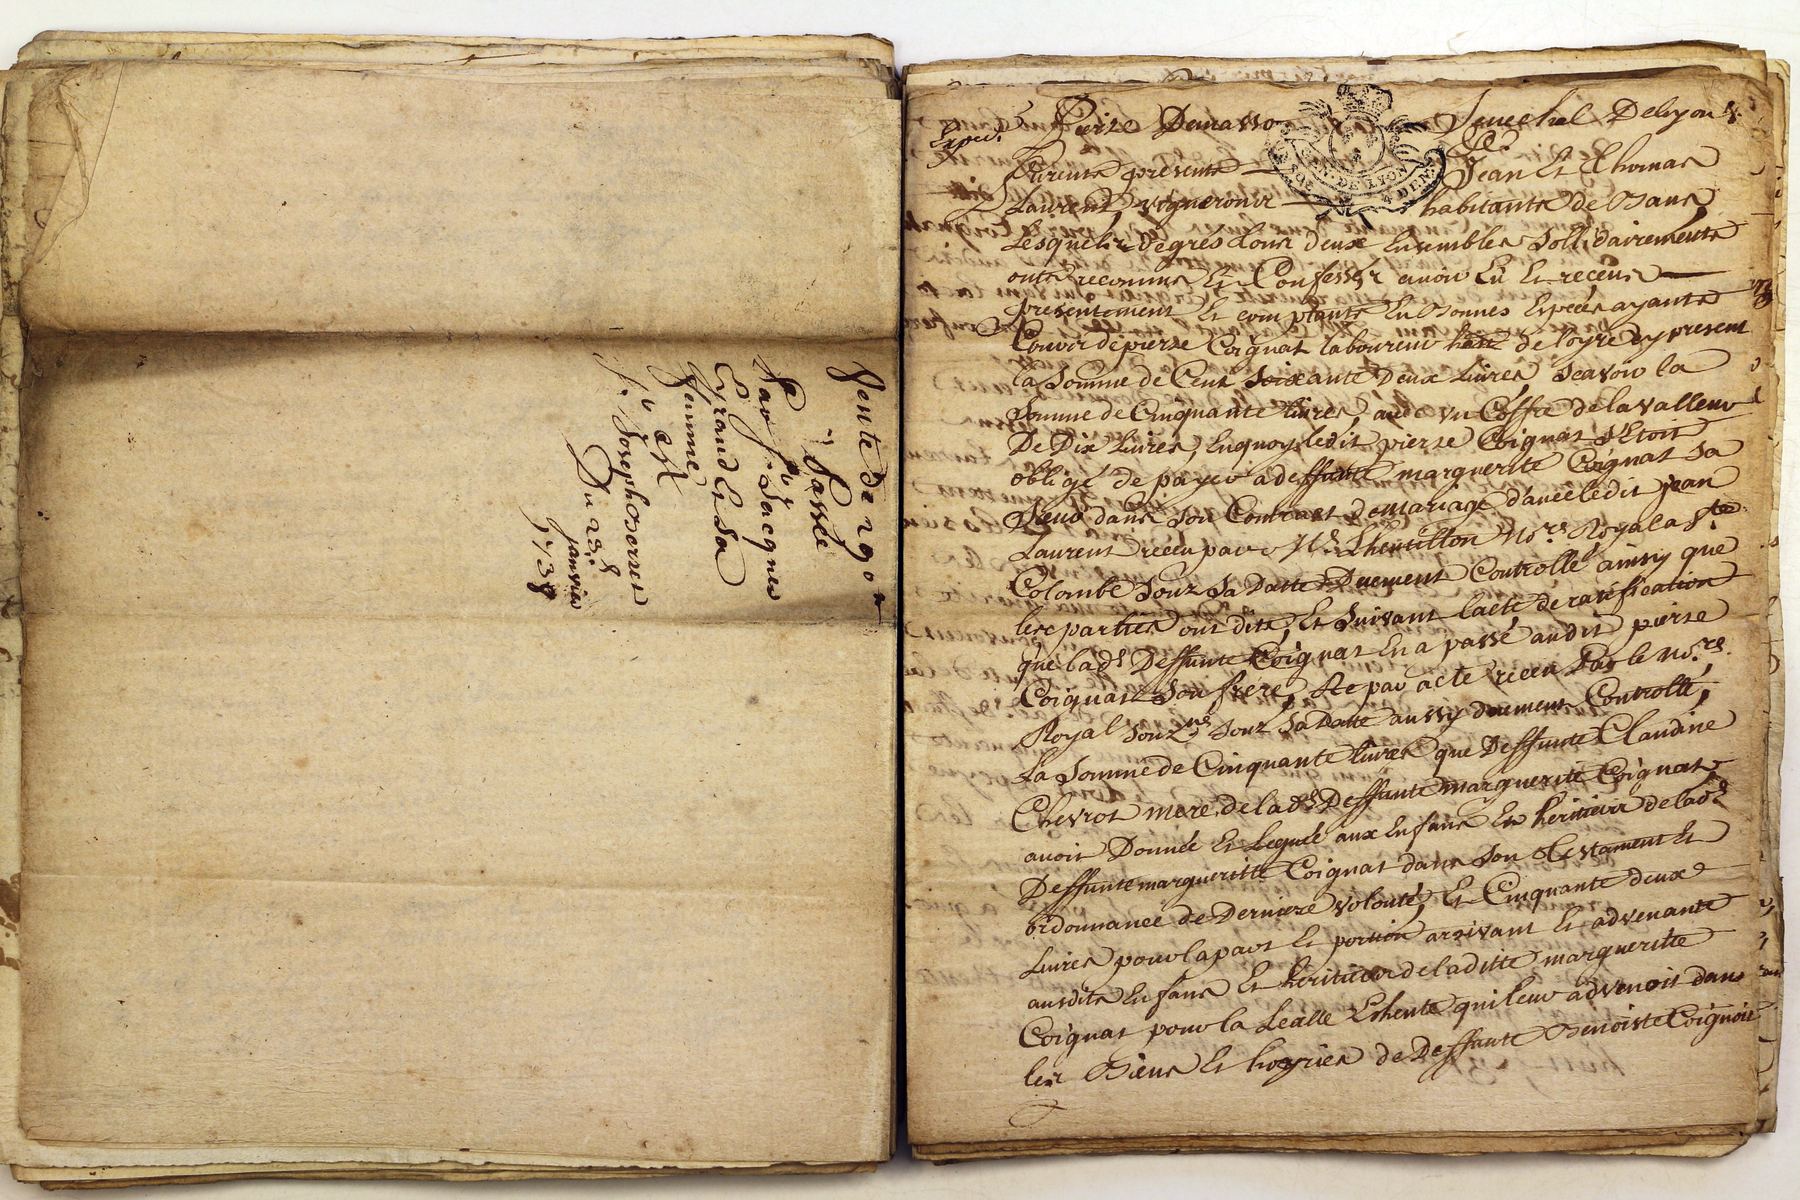 Vente de 290 ll
Passée
Par Sr. Jacques
Grand Et Sa
femme
a St
Sr. Joseph
Du 23e
janvier
1738
Expéd.
Pierre Demasso Senechal Delyon &
GEN. DE LYON
4 DEN.
furents presents Jean Et Thomas
Laurent vignerons habitants de Bans
Lesquels Degres Tous deux Ensembles Sollidairements
onts reconnus Et Confesser avoir Eü Et receus
presentement Et comptants En Bonnes Espèces ayants
Couvrs de pierre Coignat laboureur hant de loyre cy present
la Somme de Cent Soixante Deux Livres Scavoir la
Somme de Cinquante livres, avec vn Coffre de la valleur
De Dix Livres, Enquoy ledit pierre Coignat S'Etoit
obligé de payer a deffunte marguerite Coignat Sa
Sœur dans Son Contract de mariage d'avec ledit jean
Laurent recëu par Me. Nore. Royal a Ste.
Colombe Souz Sa Datte Duement Controllé ainsy que
les parties ont dits, Et Suivant l'acte de ratification
que lade Deffunte Coignat En a passé audit pierre
Coignat Son frere, Ste par acte recëu Par le Nore.
Royal Souzne Souz Sa Datte aussy duement Controllé,
La Somme de Cinquante livres que Deffunte Claudine
Chevrot mere de lade Deffunte marguerite Coignat
avoit Donnée Et Leguée aux Enfans Et heritiers de lade
Deffunte margueritte Coignat dans Son Testament Et
ordonnance de Derniere volonté, Et Cinquante deux
Livres pour la part Et portion arrivant Et advenante
ausdits Enfans Et heritiers de laditte margueritte
Coignat pour la Sealle Eshente qui leur advenoit dans
les Biens Et hoyries de Deffunte Benoiste Coignoit